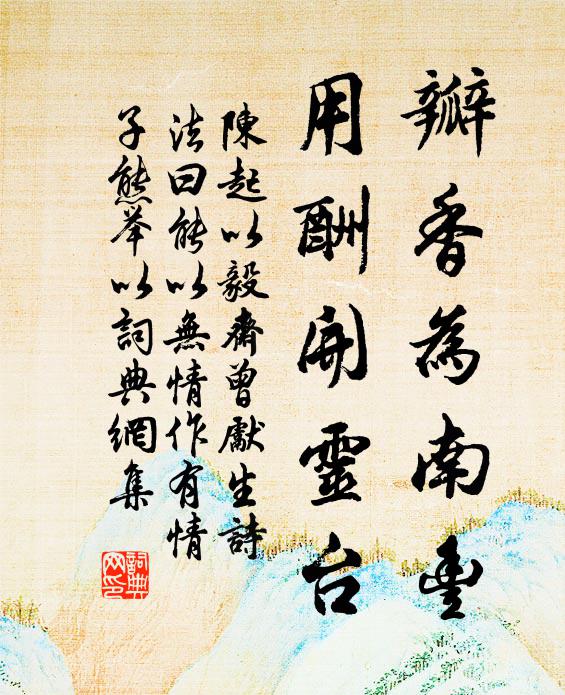 瓣香為南豐
用酬開靈台
陳起以毅齋曾獻生詩
法曰能以無情作有情
子熊举以詞典網集
詞典网印